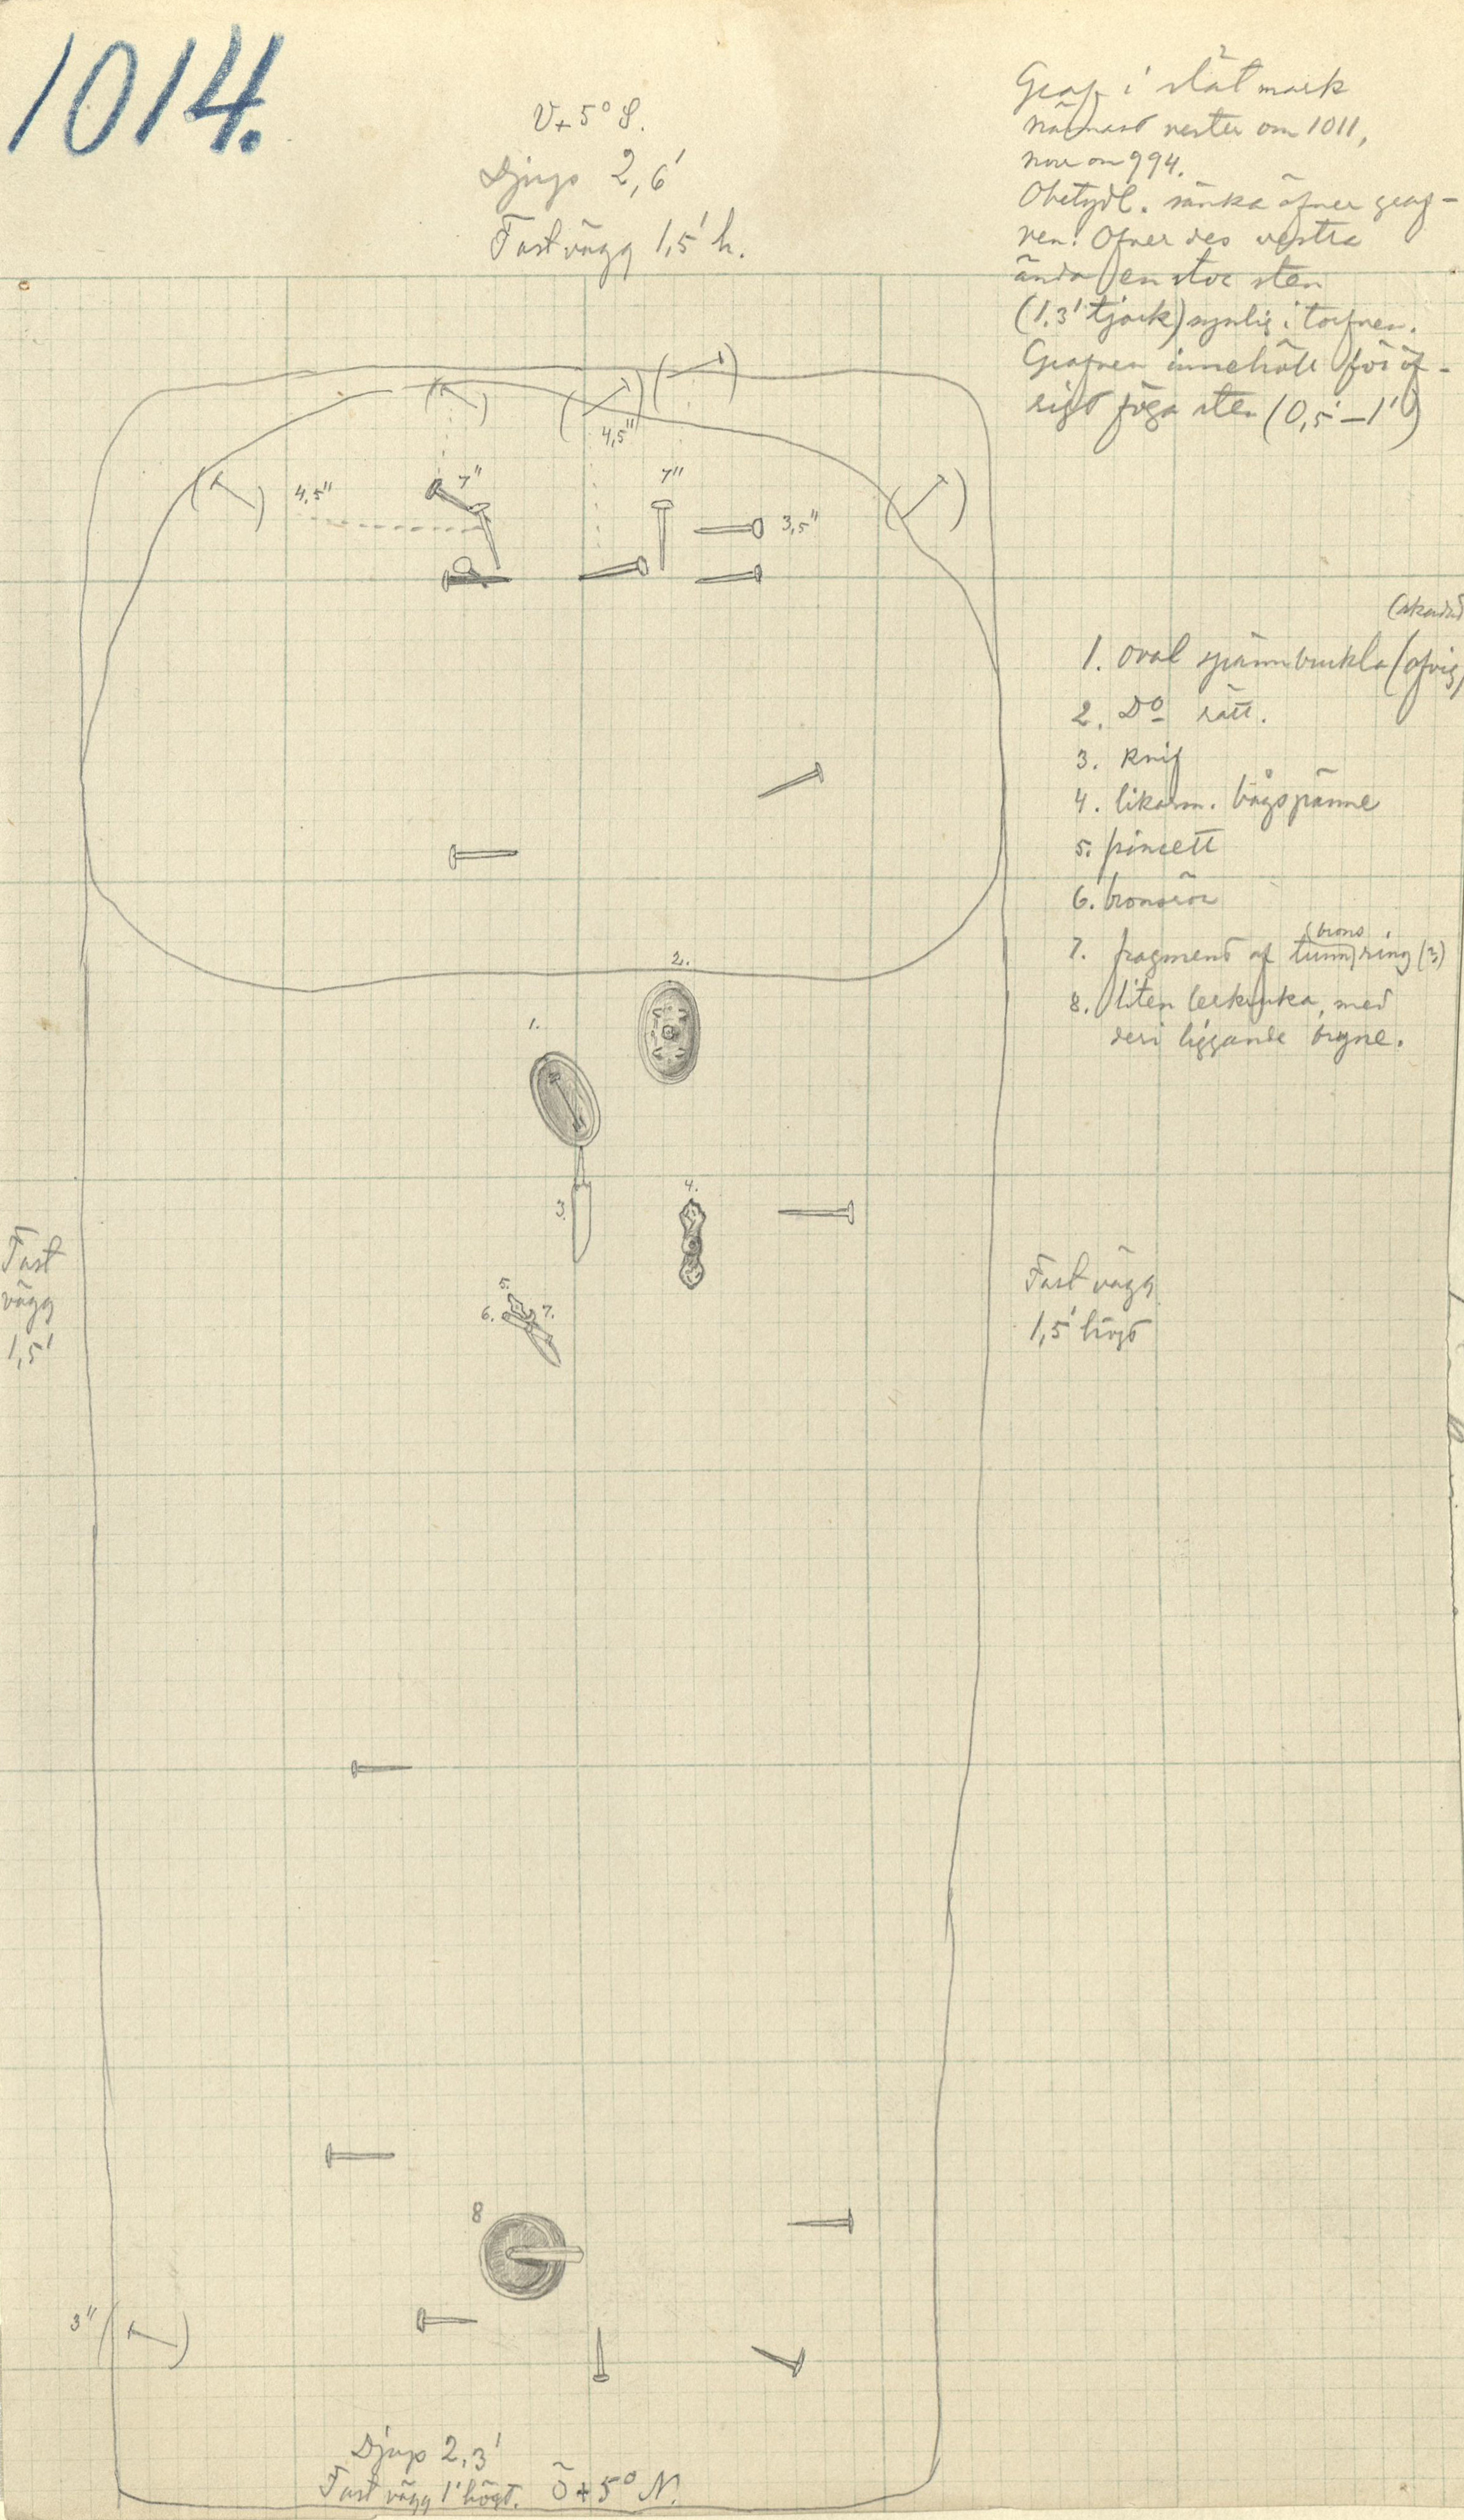 1014.
V+5° S.
Djup 2,6'
Fast vägg 1,5' h.
Graf i slät mark
närmast vester om 1011,
norr om 994.
Obetydl. sänka öfver graf-
ven. Öfver des vestra
ända en stor sten
(1,3' tjock) synlig i torfven.
Grafven innehöll för öf-
rigt föga sten (0,5'-1')
4,5"
4,5"
7"
7"
3,5"
1. oval spännbuckla (afvig,
(skadad
2. Do rätt.
3. Knif
4. likarm. bågspänne
5. pincett
6. bronsrör
7. fragment af tunn (brons) ring (3)
8. liten lerkruka, med
deri liggande bryne.
2.
1.
3.
4.
5.
6.
7.
Fast
vägg
1,5'
Fast vägg
1,5' högt
8
3"
Djup 2,3'
Fast vägg 1' högt. Ö+5° N.